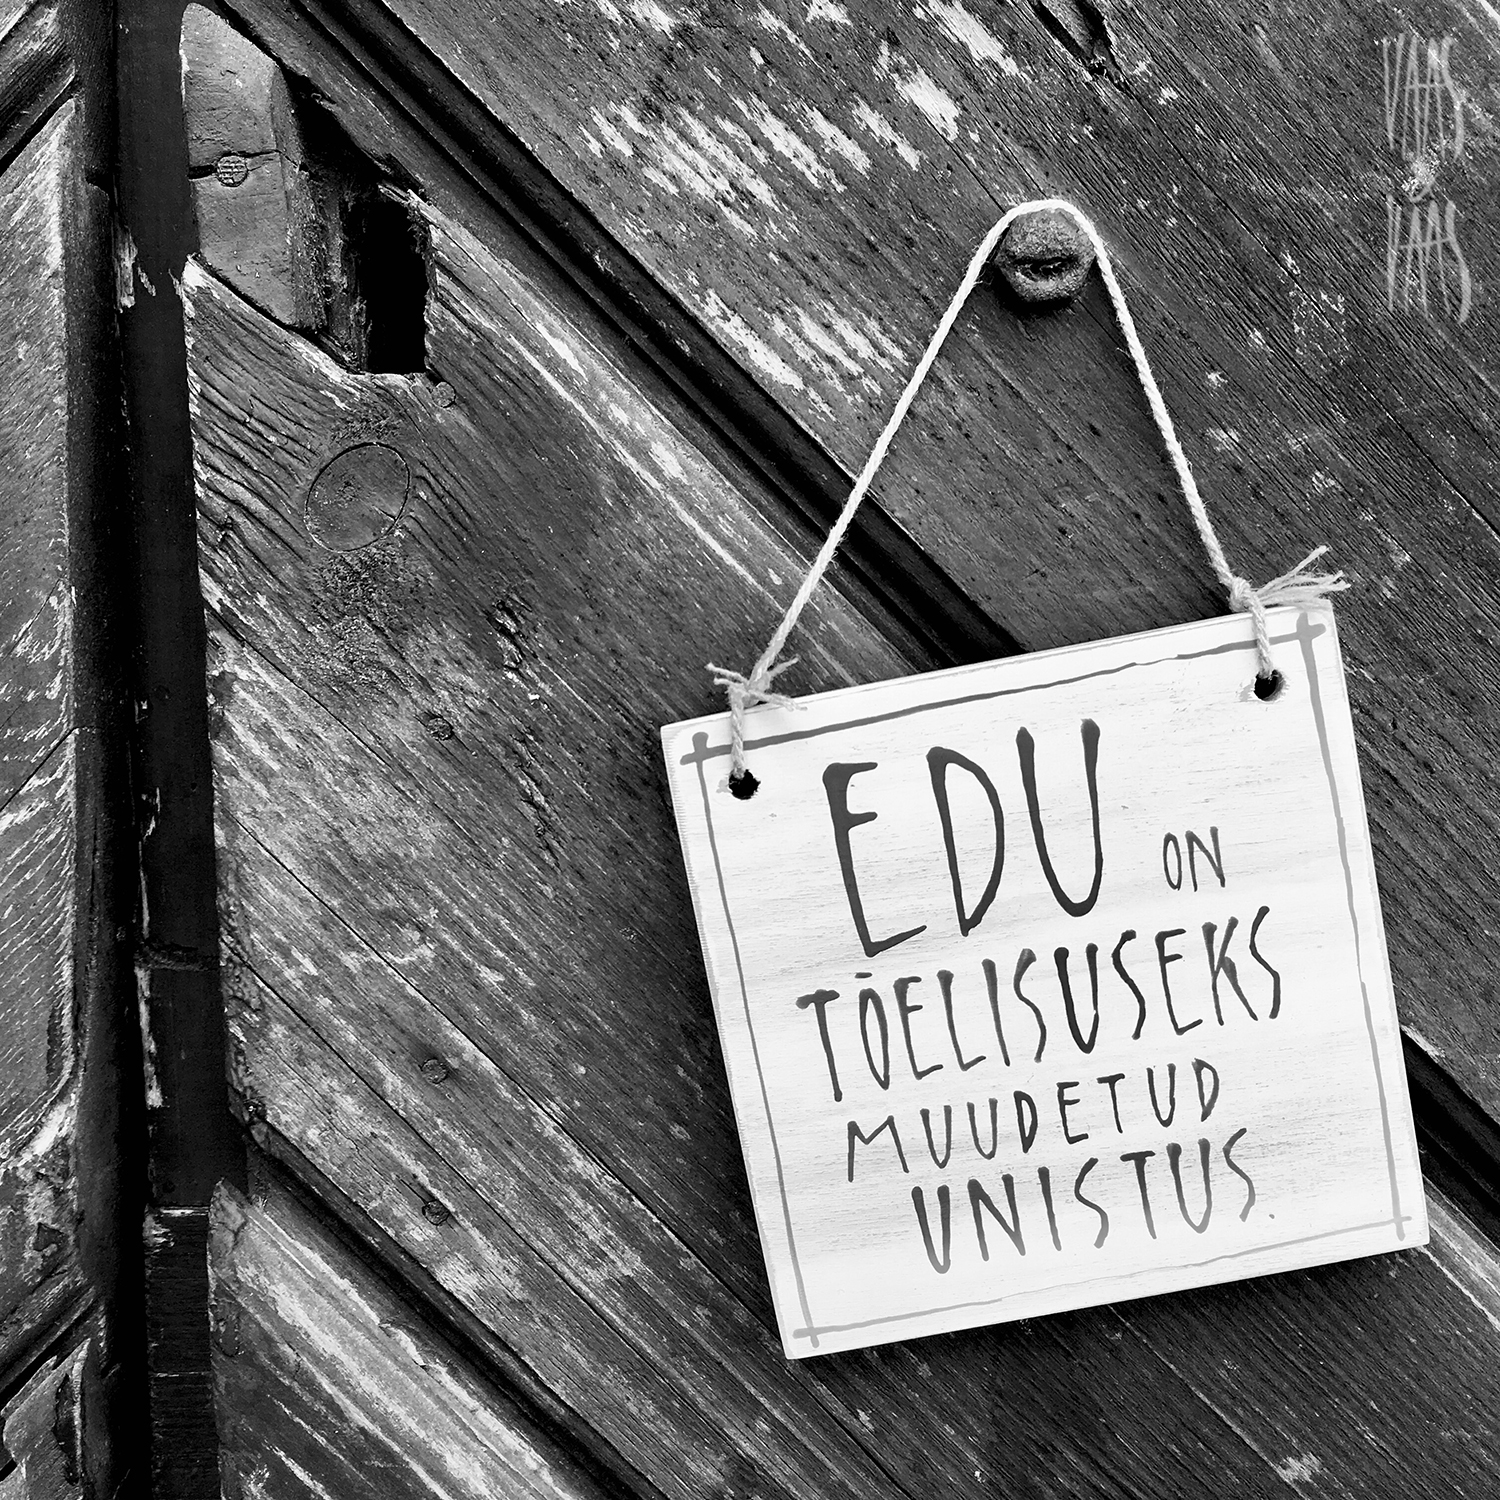 VAAS
&
VAAS
EDU ON
TÕELISUSEKS
MUUDETUD
UNISTUS.